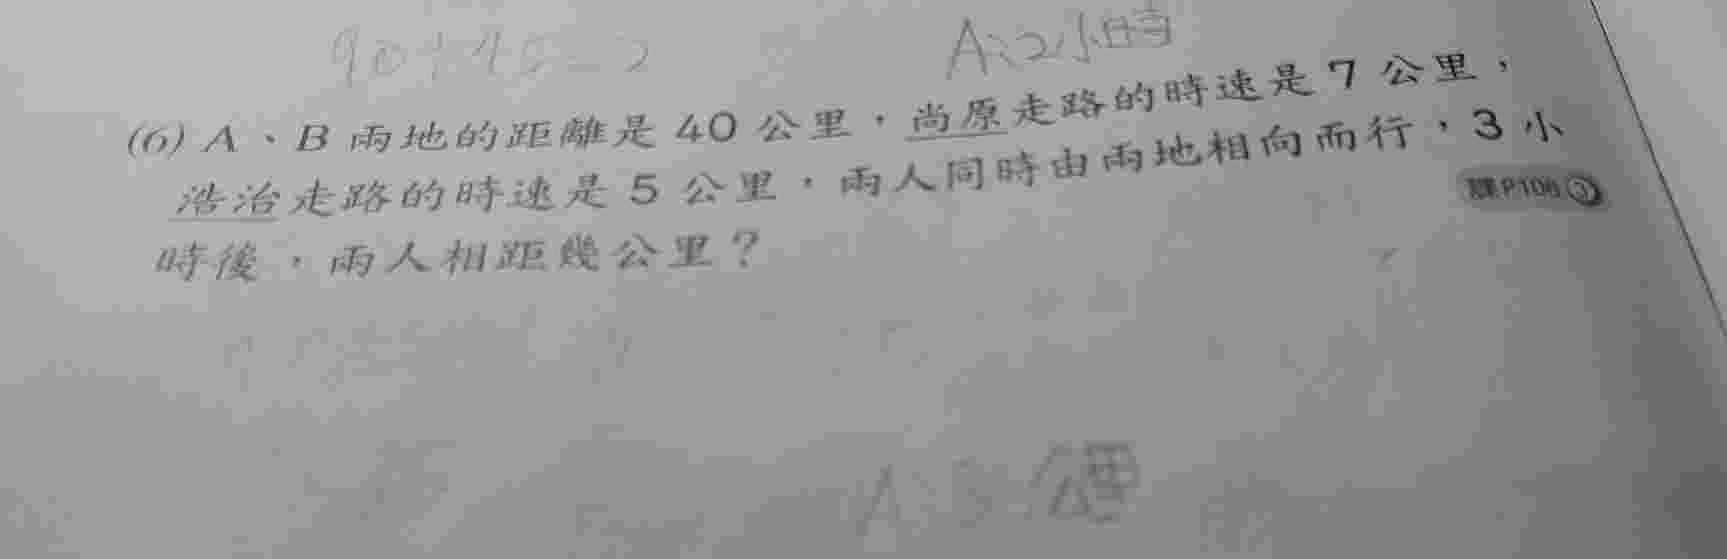 90÷45=2
A:2小時
(6) A、B 兩地的距離是 40 公里，尚原走路的時速是 7 公里，
浩治走路的時速是 5 公里，兩人同時由兩地相向而行，3 小
課P106③
時後，兩人相距幾公里？
A 公里